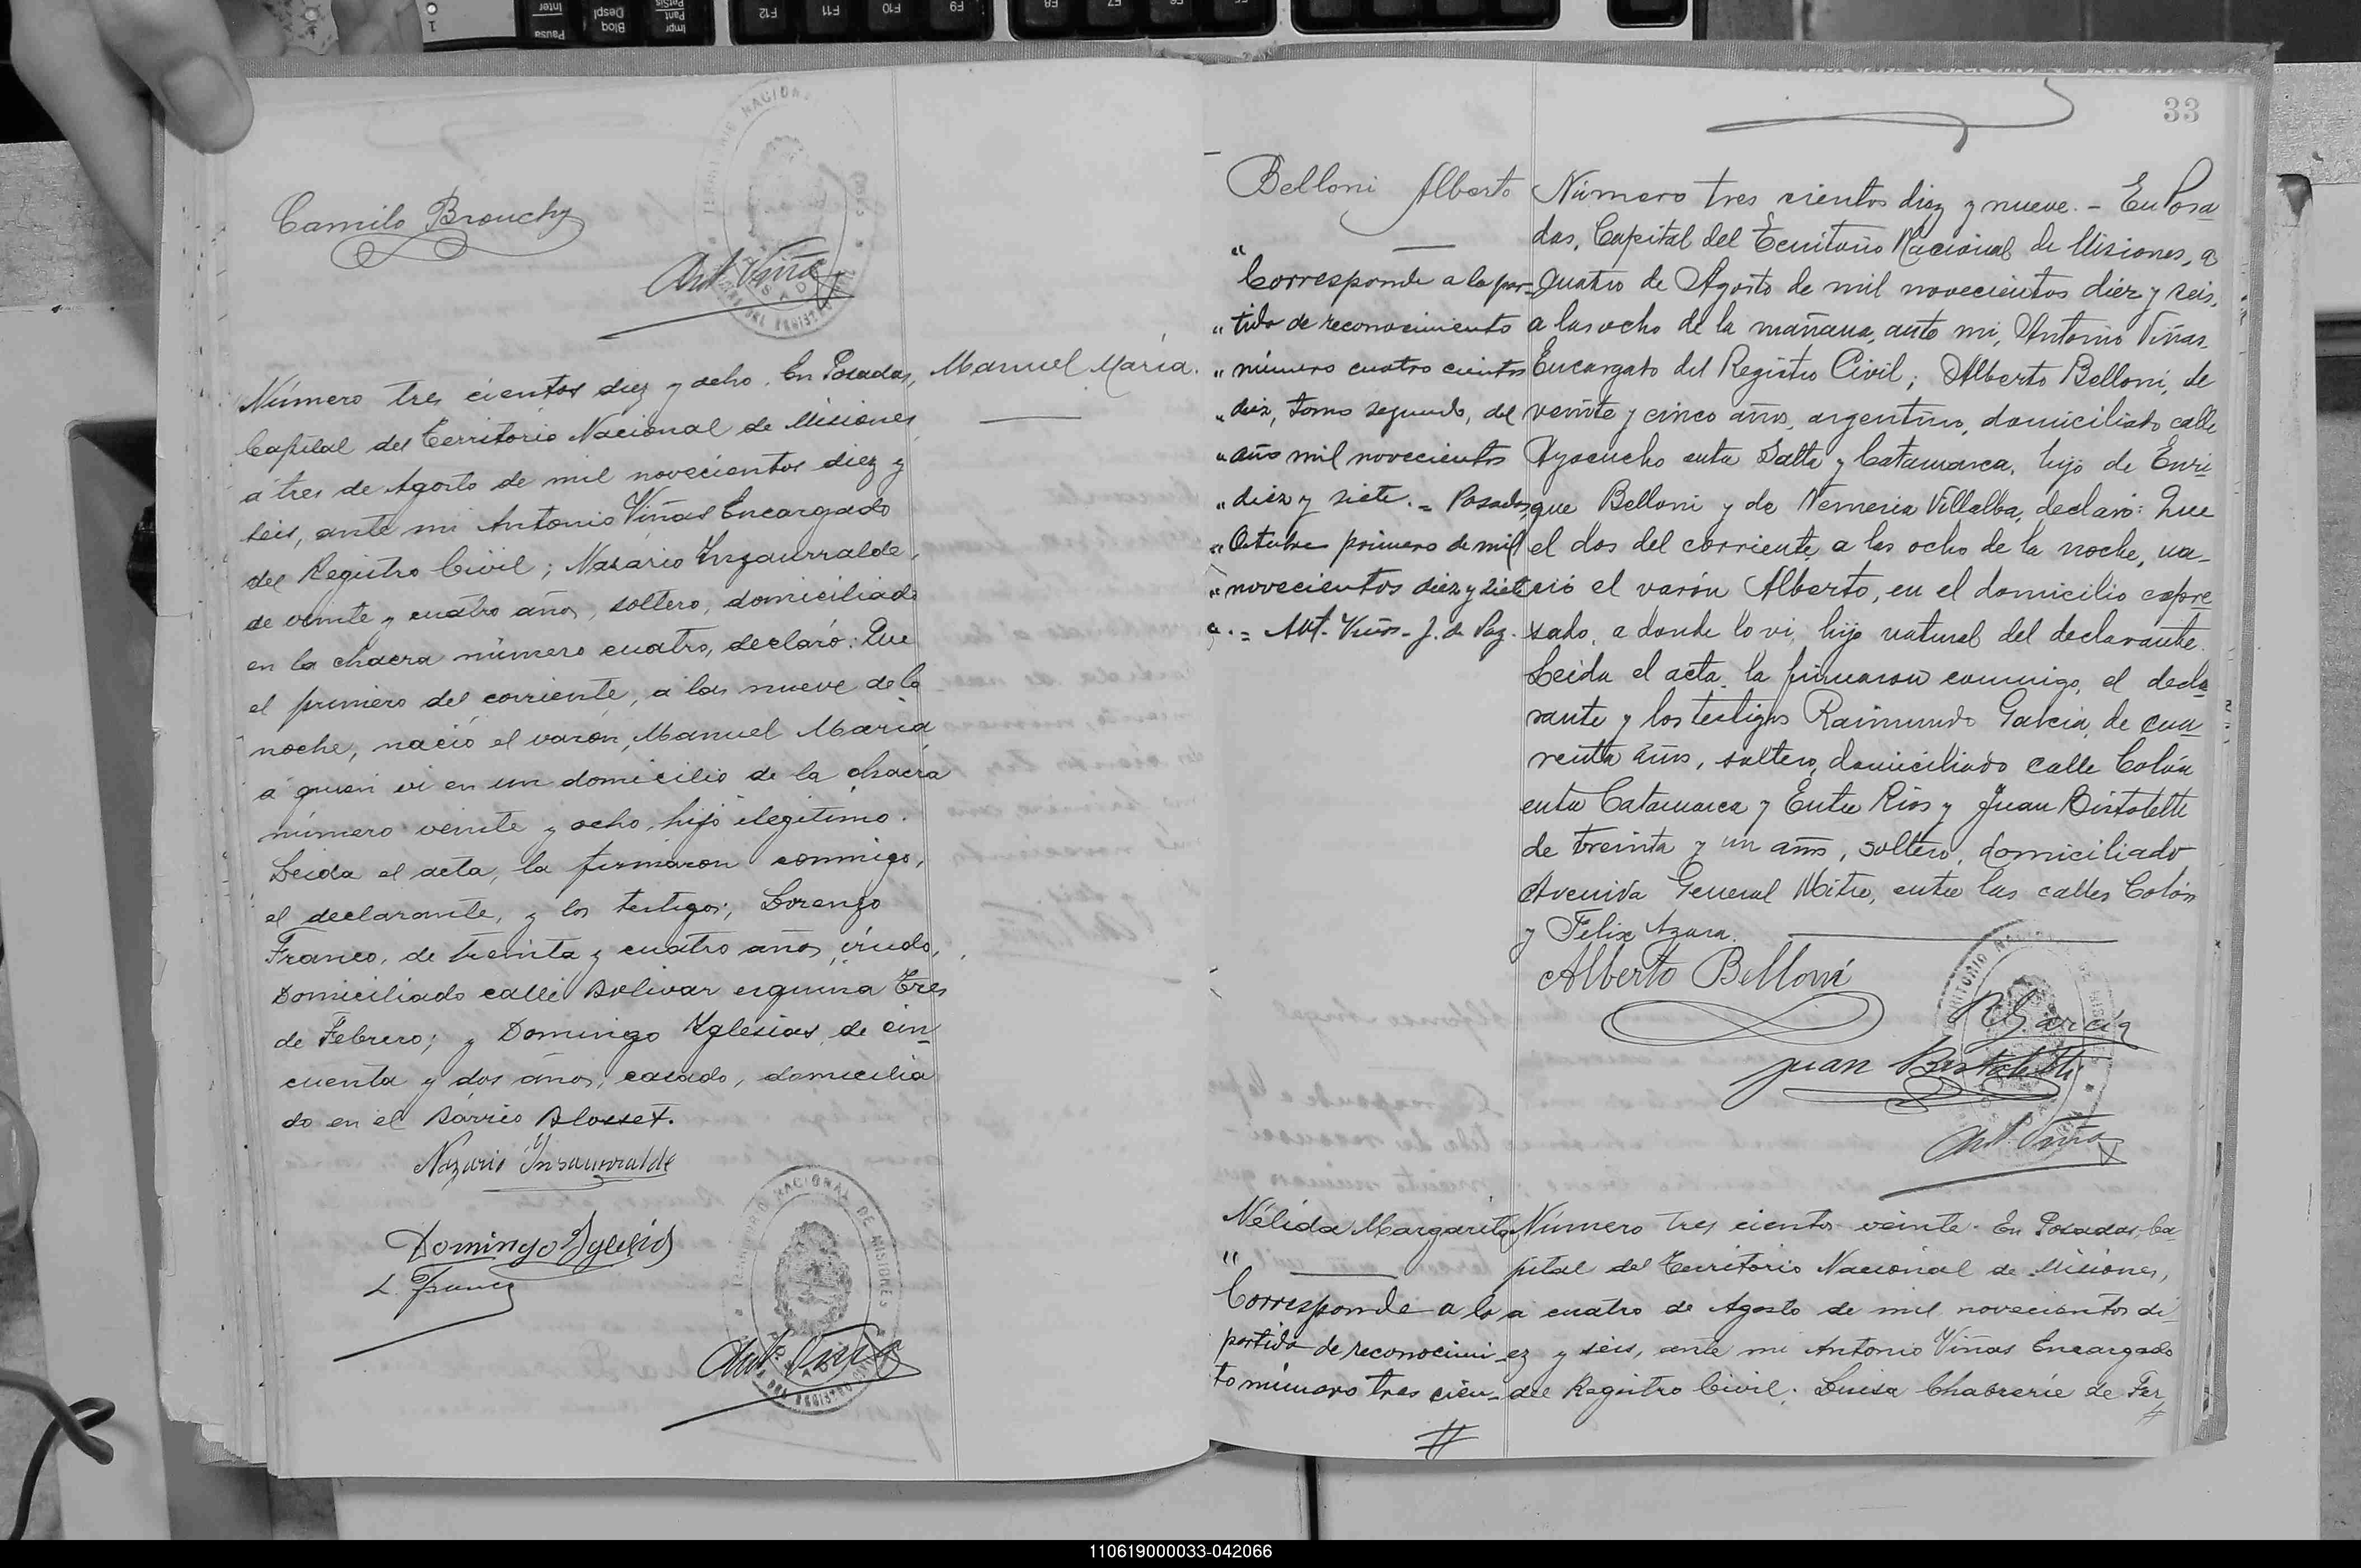 33
Camilo Brouchy
Ant. Viñas
Número tres cientos diez y ocho. En Posadas,
Capital del Territorio Nacional de Misiones,
a tres de Agosto de mil novecientos diez y
seis, ante mi Antonio Viñas Encargado
del Registro Civil; Nazário Inzaurralde,
de veinte y cuatro años, soltero, domiciliado
en la chacra número cuatro, declaró: Que
el primero del corriente, a las nueve de la
noche, nació el varón, Manuel María,
a quien vi en un domicilio de la chacra
número veinte y ocho, hijo ilegitimo.
Leida el acta, la firmaron conmigo,
el declarante, y los testigos; Lorenzo
Franco, de treinta y cuatro años, viudo,
Domiciliado calle Bolivar esquina Tres
de Febrero; y Domingo Yglesias, de cin-
cuenta y dos años, casado, domicilia
do en el Bárrio Blosset.
Nazario Insaurralde
Domingo Yglesias
L. Franco
Ant. Viñas
TERRITORIO NACIONAL DE MISIONES
Manuel María.
Belloni Alberto
"
Corresponde a la par-
" tida de reconocimiento
" número cuatro cientos
" diez, tomo segundo, del
" año mil novecientos
" diez y siete. = Posadas,
" Octubre primero de mil
" novecientos diez y siete
" . = Ant. Viñas - J. de Paz.
Número tres cientos diez y nueve. - En Posa
das, Capital del Territorio Nacional de Misiones, a
quatro de Agosto de mil novecientos diez y seis,
a las ocho de la mañana, ante mi, Antonio Viñas,
Encargado del Registro Civil; Alberto Belloni, de
veinte y cinco años, argentino, domiciliado calle
Ayacucho entre Salta y Catamarca, hijo de Enri
que Belloni y de Nemeria Villalba, declaró: Que
el dos del corriente, a las ocho de la noche, na-
ció el varón Alberto, en el domicilio expre
sado, a donde lo vi, hijo natural del declarante.
Leida el acta, la firmaron conmigo, el decla
rante y los testigos Raimundo Garcia, de cua
renta años, soltero, domiciliado calle Colón
entre Catamarca y Entre Rios y Juan Bistoletti
de treinta y un años, soltero, domiciliado
Avenida General Mitre, entre las calles Colón
y Felix Azara.
Alberto Belloni
R. Garcia
Juan Bistoletti
Ant. Viñas
Nélida Margarita
"
Corresponde a la
partida de reconocimi-
to número tres cien-
#
Número tres cientos veinte. En Posadas, Ca
pital del Territorio Nacional de Misiones,
a cuatro de Agosto de mil novecientos di
ez y seis, ante mi Antonio Viñas Encargado
del Registro Civil. Luisa Chabrerie de Fer
#
110619000033-042066